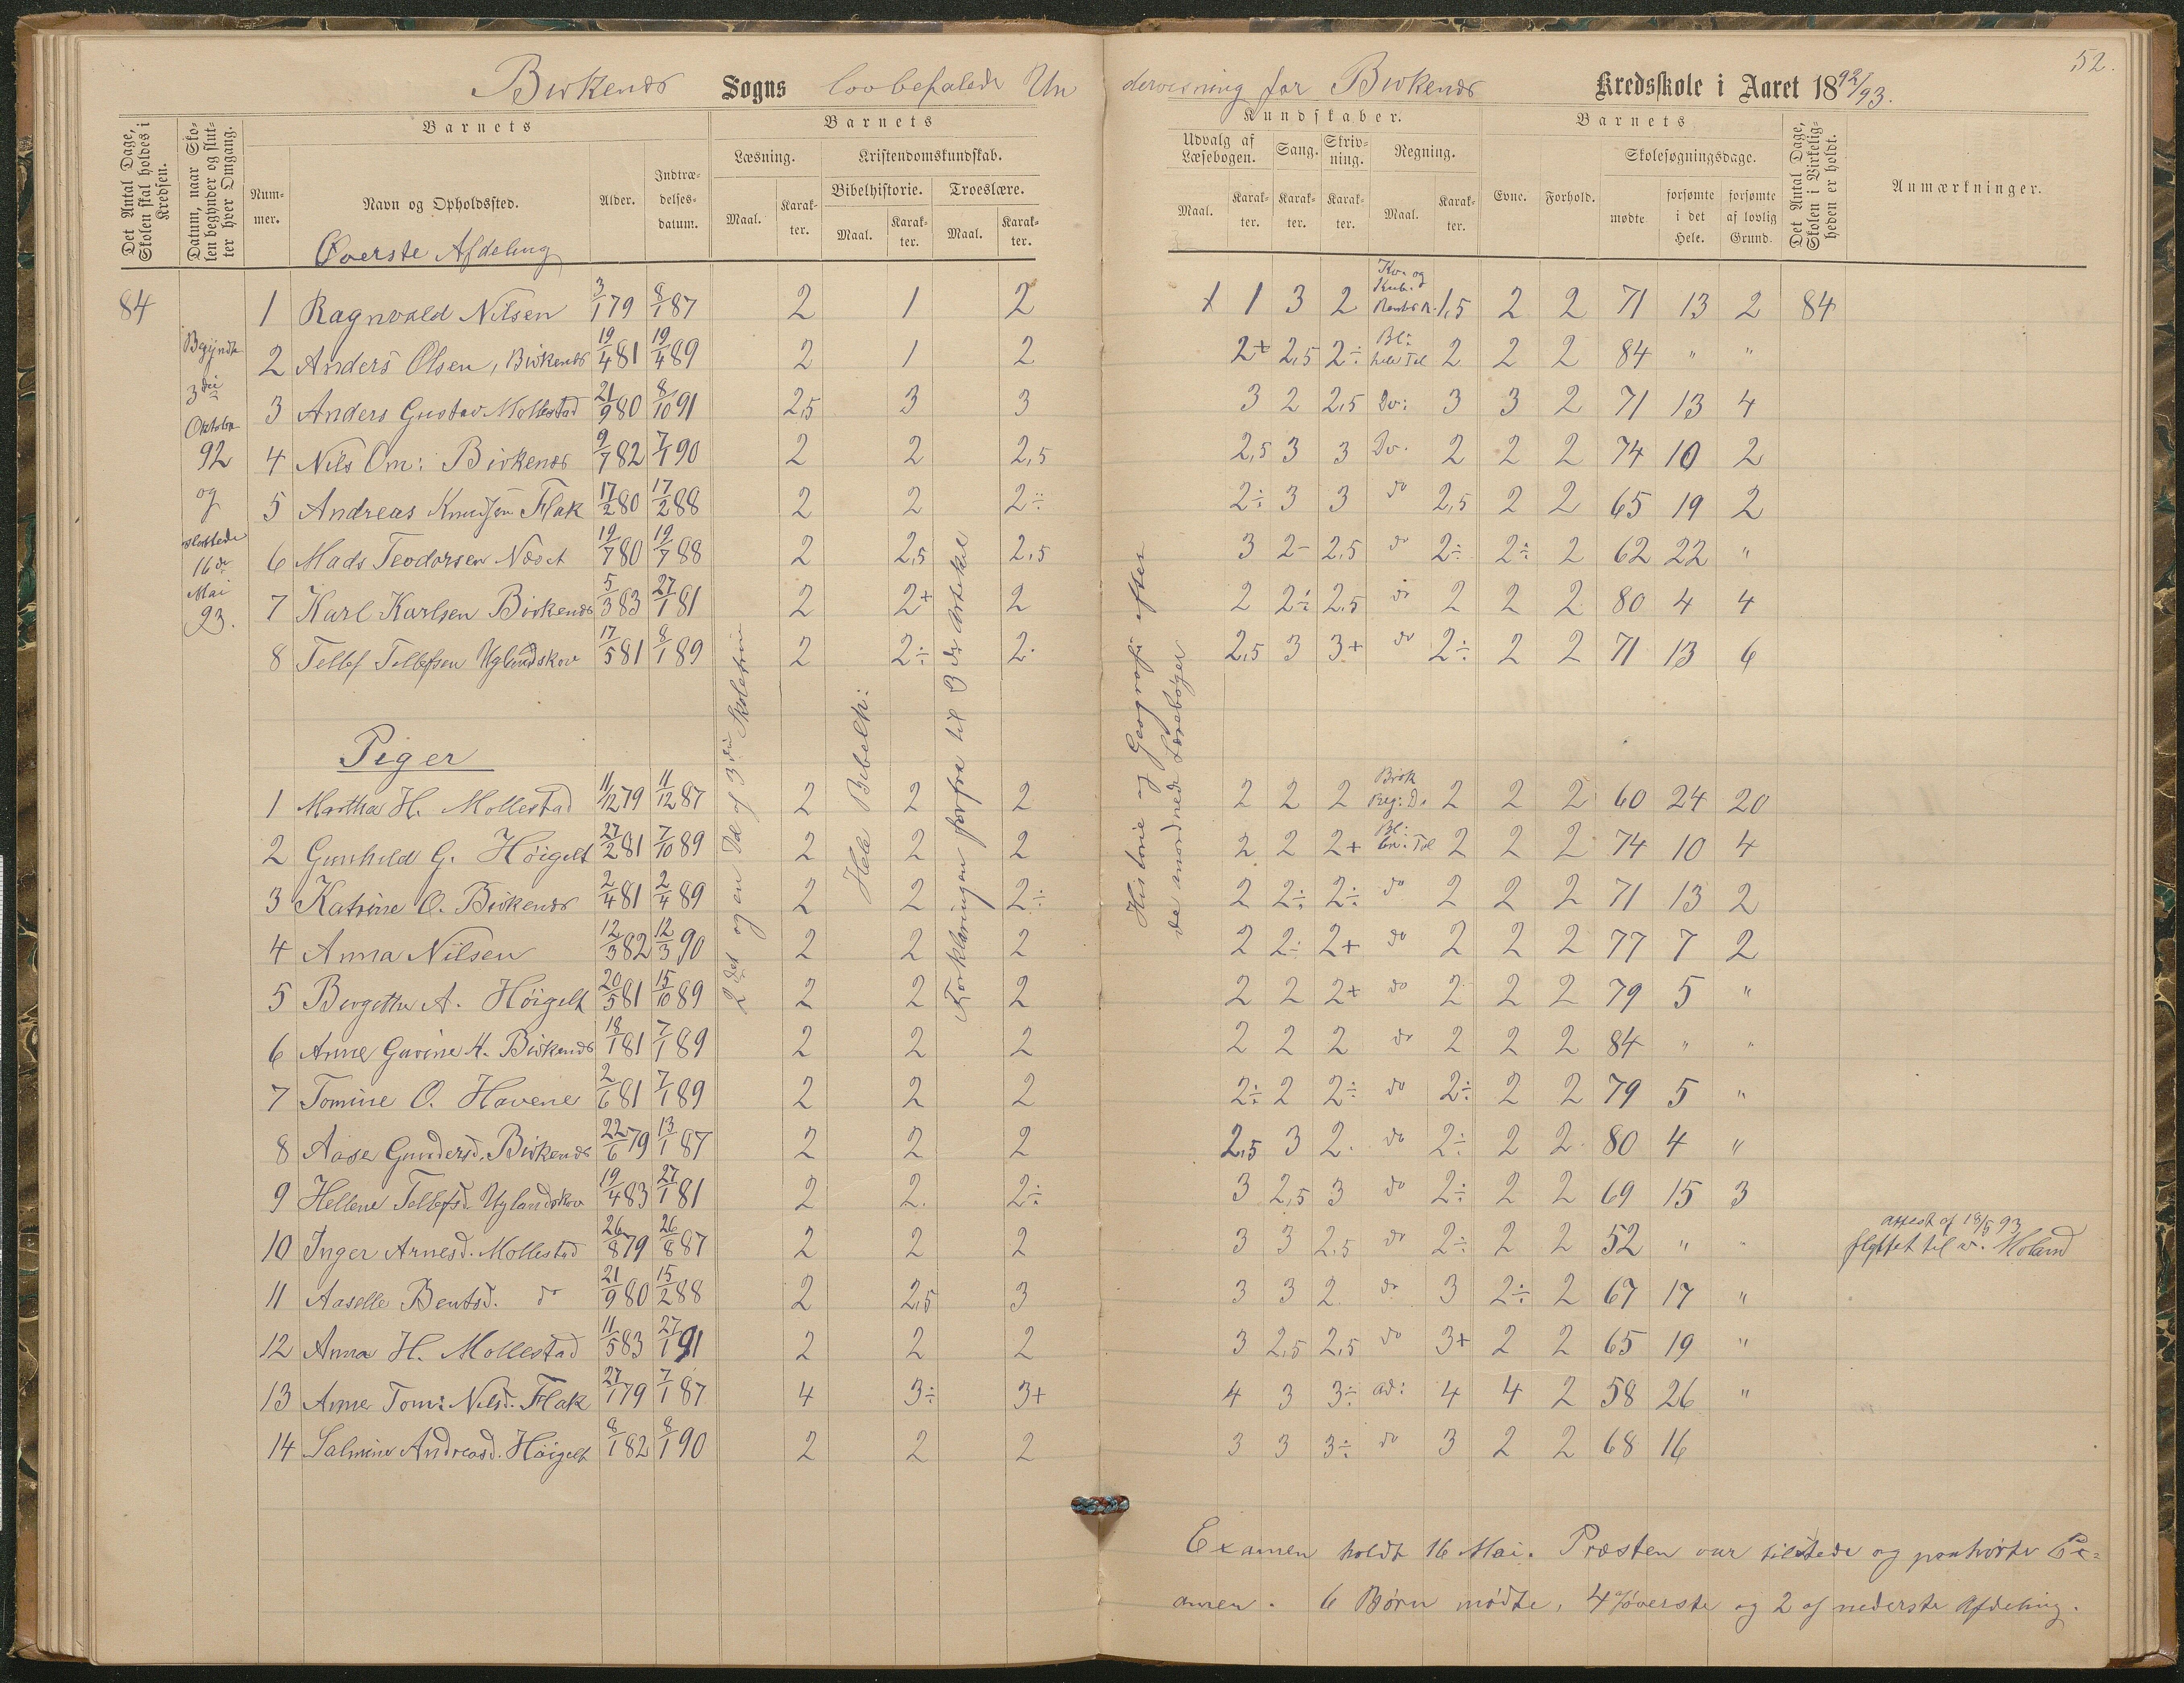 52.
Birkenes Sogns lovbefalede Undervisning for Birkenes Kredsskole i Aaret 1892/93.
Det Antal Dage, Skolen skal holdes i Kredsen.
Datum, naar Skolen begynder og slutter hver Omgang.
Barnets
Nummer.
Navn og Opholdssted.
Alder.
Indtrædelsesdatum.
Barnets
Læsning.
Maal.
Karakter.
Kristendomskundskab.
Bibelhistorie.
Maal.
Karakter.
Troeslære.
Maal.
Karakter.
Kundskaber.
Udvalg af Læsebogen.
Maal.
Karakter.
Sang.
Karakter.
Skrivning.
Karakter.
Regning.
Maal.
Karakter.
Barnets
Evne.
Forhold.
Skolesøgningsdage.
mødte
forsømte i det Hele.
forsømte af lovlig Grund.
Det Antal Dage, Skolen i Virkeligheden er holdt.
Anmærkninger.
Øverste Afdeling
84
Begyndte
3die
Oktober
92
og
sluttede
16de
Mai
93.
1 Ragnvald Nilsen 3/1 79 8/1 87 2 1 2 1 3 2 Kv. og Kub. 1,5 2 2 71 13 2 84
2 Anders Olsen, Birkenes 19/4 81 19/4 89 2 1 2 2+ 2,5 2÷ Bl: hele Tal 2 2 2 84 " "
3 Anders Gustav Mollestad 21/9 80 8/10 91 2,5 3 3 3 2 2,5 Do: 3 3 2 71 13 4
4 Nils Om: Birkenes 9/7 82 7/1 90 2 2 2,5 2,5 3 3 Do. 2 2 2 74 10 2
5 Andreas Knudsen Flak 17/2 80 17/2 88 2 2 2÷ 2÷ 3 3 do 2,5 2 2 65 19 2
6 Mads Teodorsen 19/7 80 19/7 88 2 2,5 2,5 3 2- 2,5 do 2÷ 2÷ 2 62 22 "
7 Karl Karlsen Birkenes 5/3 83 27/1 81 2 2+ 2 2 2÷ 2,5 do 2 2 2 80 4 4
8 Tellef Tellefsen Uglandskov 17/5 81 8/1 89 2 2÷ 2 2,5 3 3+ do 2÷ 2 2 71 13 6
Piger
1 Martha H. Mollestad 11/12 79 11/12 87 2 2 2 2 2 2 Brøk Reg: D. 2 2 2 60 24 20
2 Gunhild G. Høigilt 27/2 81 7/10 89 2 2 2 2 2 2+ Bl: Tal 2 2 2 74 10 4
3 Katrine O. Birkenes 2/4 81 2/4 89 2 2 2÷ 2 2÷ 2÷ do 2 2 2 71 13 2
4 Anna Nilsen 12/3 82 12/3 90 2 2 2 2 2÷ 2+ do 2 2 2 77 7 2
5 Bergithe A. Høigilt 20/5 81 15/10 89 2 2 2 2 2 2+ do 2 2 2 79 5 "
6 Anne Gurine H. Birkenes 18/1 81 7/1 89 2 2 2 2 2 2 do 2 2 2 84 " "
7 Tomine O. Havene 2/6 81 7/1 89 2 2 2 2÷ 2 2÷ do 2÷ 2 2 79 5 "
8 Aase Gundersd. Birkenes 22/6 79 13/1 87 2 2 2 2,5 3 2 do 2÷ 2 2 80 4 "
9 Hellene Tellefsd. Uglandskov 19/4 83 27/1 81 2 2 2÷ 3 2,5 3 do 2÷ 2 2 69 15 3
10 Inger Arnesd. Mollestad 26/8 79 26/8 87 2 2 2 3 3 2,5 do 2÷ 2 2 52 " " attest af 18/5 93 flyttet til v. Moland
11 Aaselle Bentsd. do 21/9 80 15/2 88 2 2,5 3 3 3 2 do 3 2÷ 2 67 17 "
12 Anna H. Mollestad 11/5 83 27/1 91 2 2 2 3 2,5 2,5 do 3+ 2 2 65 19 "
13 Anne Tom: Nilsd. Flak 27/1 79 7/1 87 4 3÷ 3+ 4 3 3÷ ad: 4 4 2 58 26 "
14 Salmine Andreasd. Høigilt 8/1 82 8/1 90 2 2 2 3 3 3÷ do 3 2 2 68 16
2det og en Del af 3die Skoletrin
Hele Bibelh:
Forklaringen forfra til 3die Artikel
Historie og Geografi efter
de anordnede Lærebøger
Examen holdt 16 Mai. Præsten var tilstede og paahørte Ex=
amen. 6 Børn mødte, 4 af øverste og 2 af nederste Afdeling.